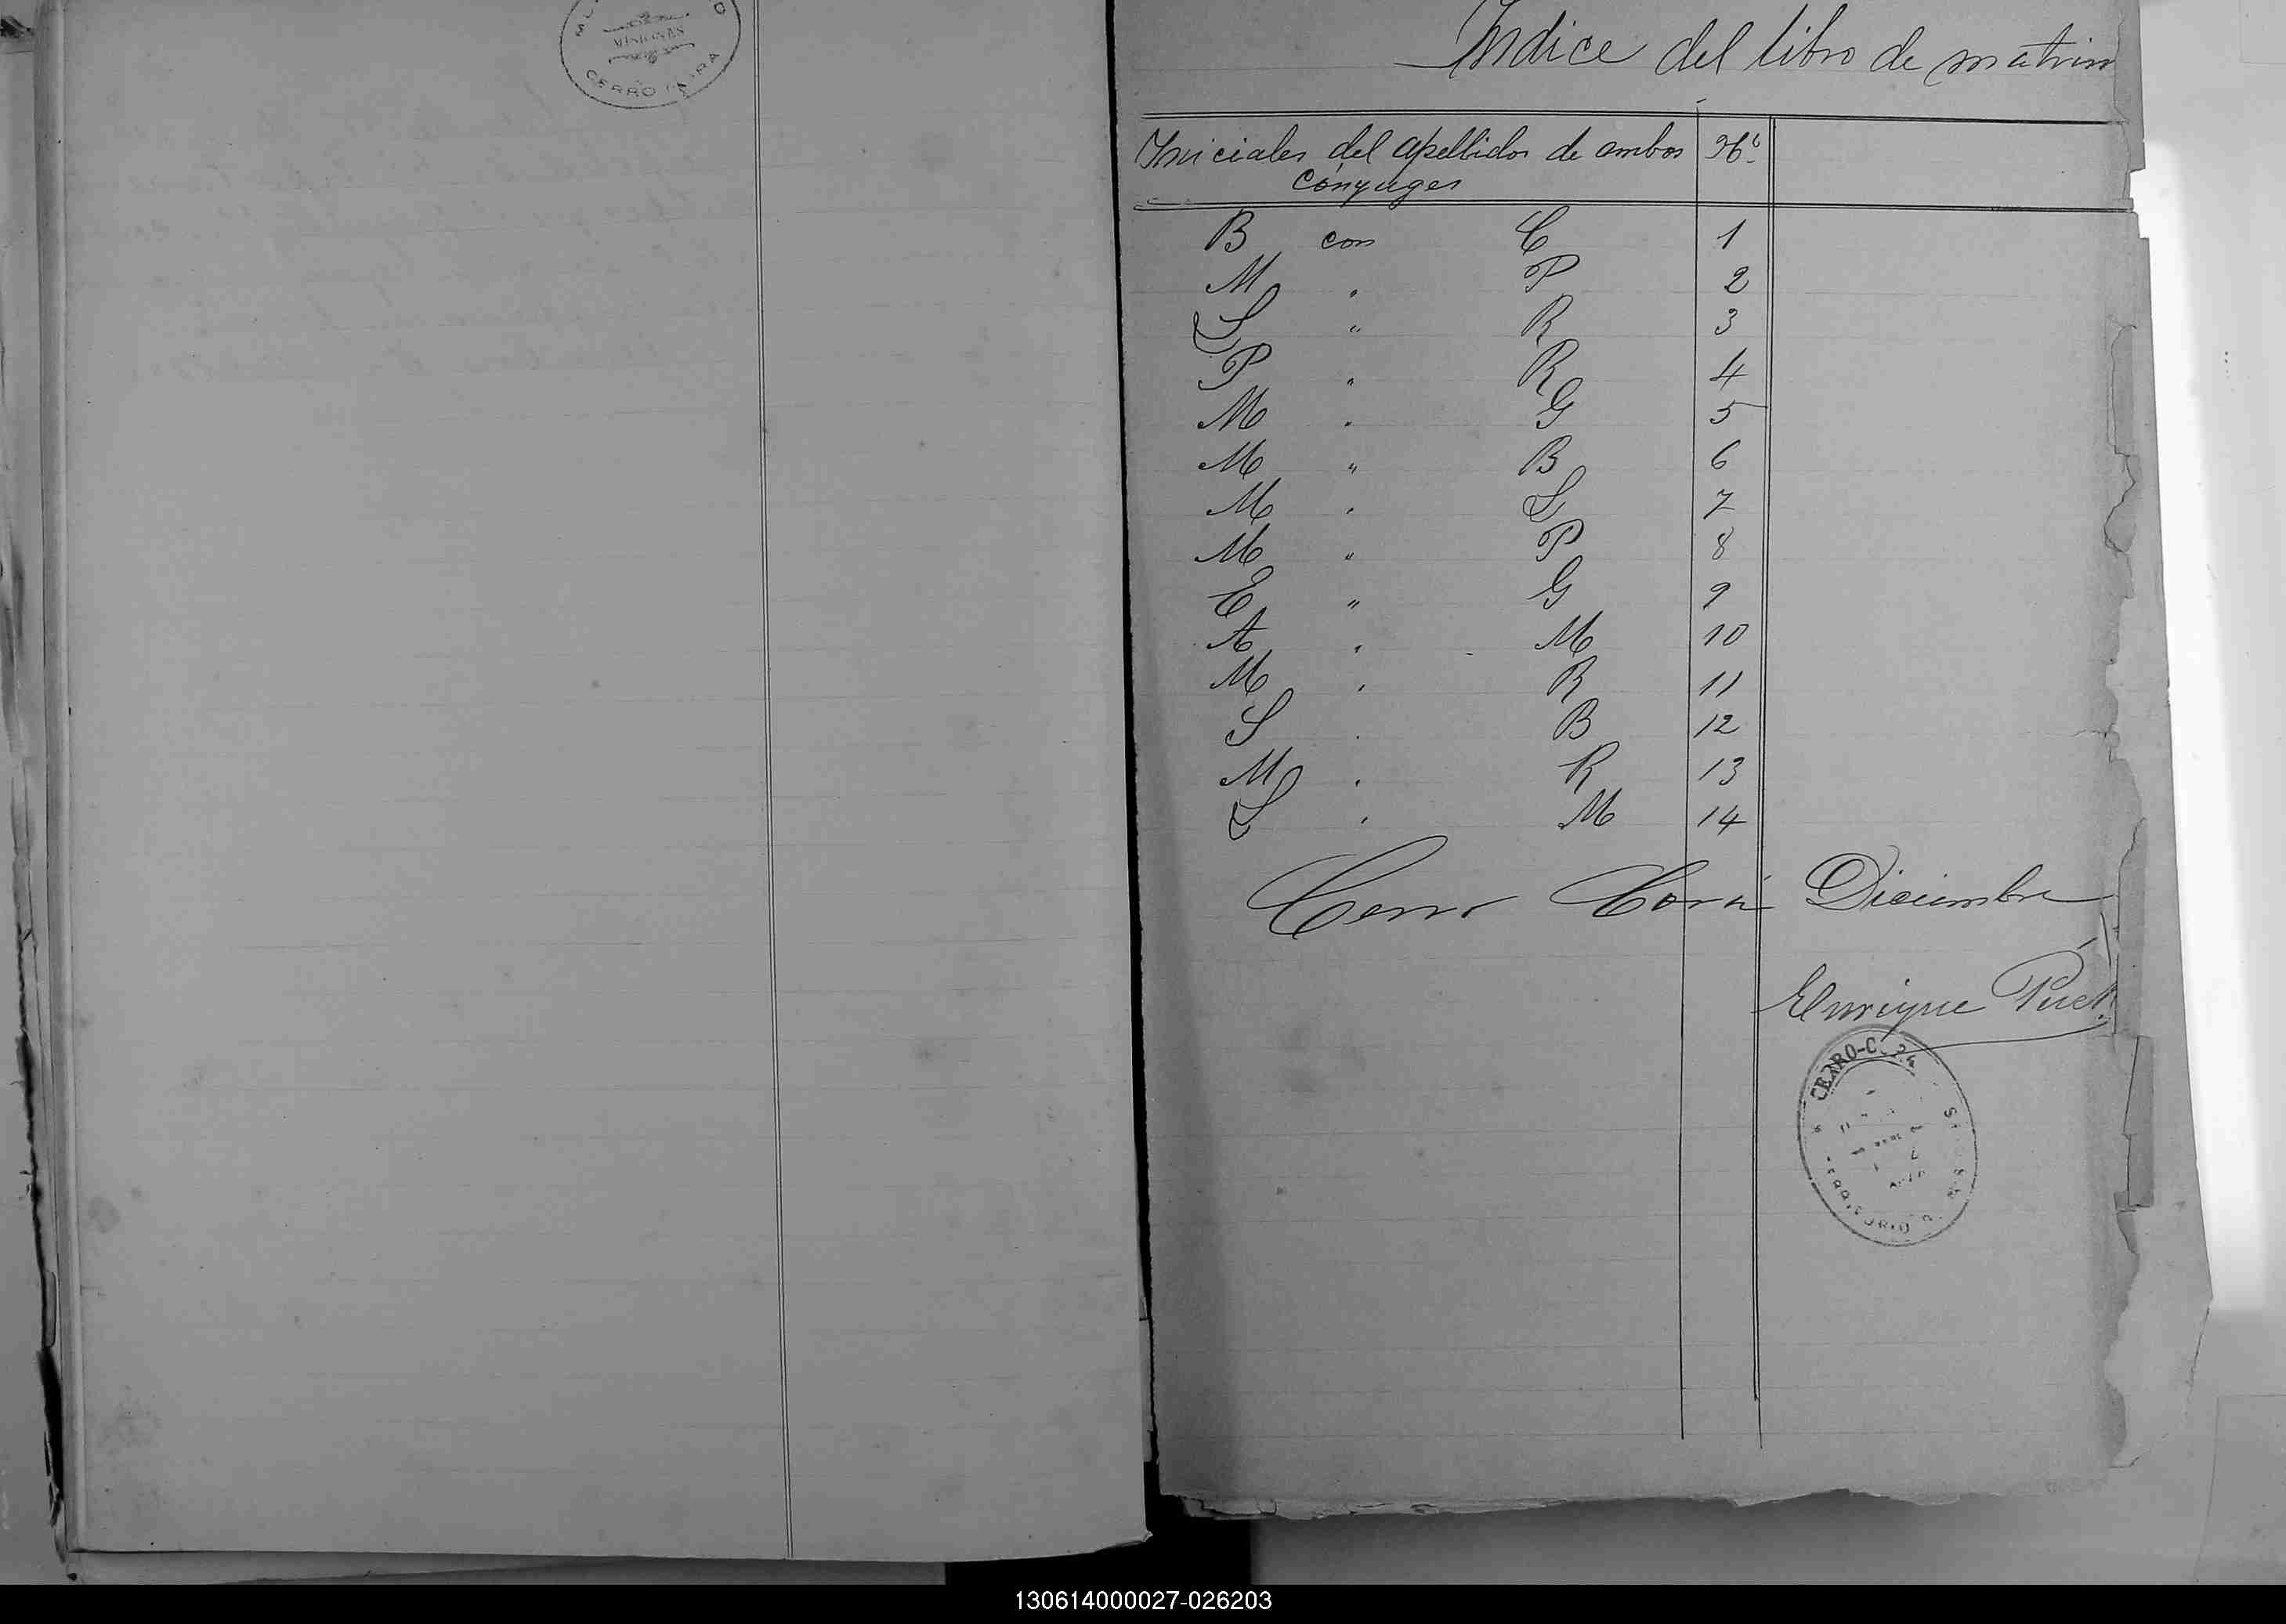 MISIONES
CERRO CORA
Indice del libro de matrim
Iniciales del apellidos de ambos Nº
cónyuges
B con C 1
M " P 2
L " R 3
P " R 4
M " G 5
M " B 6
M " L 7
M " P 8
E " G 9
A " M 10
M " R 11
S " B 12
M " R 13
L " M 14
Cerro Corá Diciembre
Enrique
CERRO-C
130614000027-026203